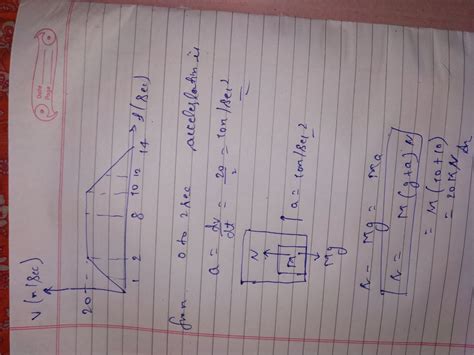 Date
Page
V (m/sec)
20
1 2 8 10 12 14 t (sec)
from 0 to 2 sec acceleration is
a = dv/dt = 20/2 = 10 m/sec2
N
M
Mg
a = 10 m/sec2
N - Mg = Ma
N = M(g+a) N
= M(10+10)
= 20M N